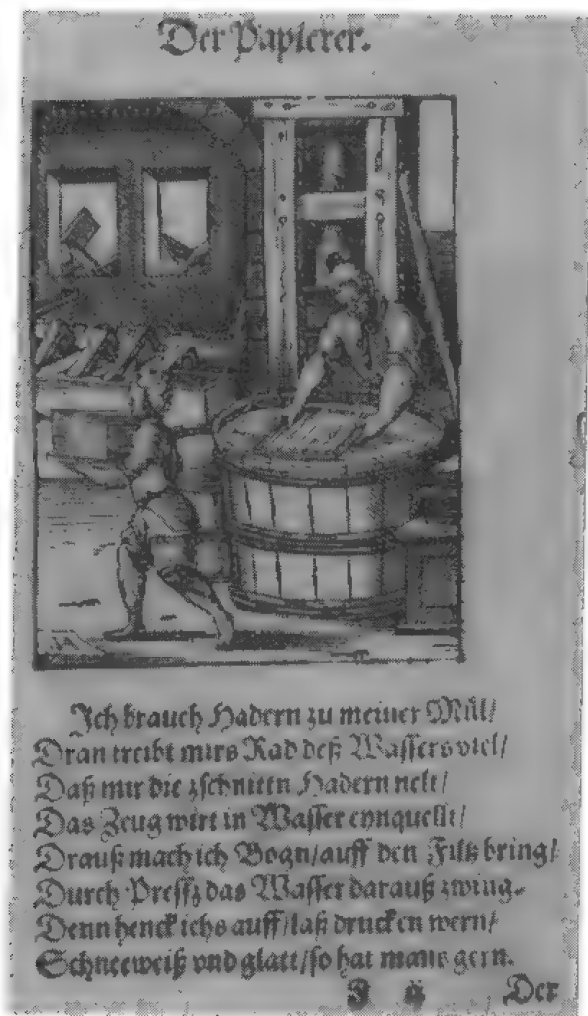 Der Papierer.
Ich brauch Hadern zu meiner Mül/
Dran treibt mirs Rad deß Wassers viel/
Daß mir die zschnittn Hadern nelt/
Das Zeug wirt in Wasser eynquelt/
Drauß mach ich Bogn/auff den Filtz bring/
Durch Preß das Wasser darauß zwing.
Denn henck ichs auff/laß drucken wern/
Schneeweiß vnd glatt/so hat mans gern.
Der